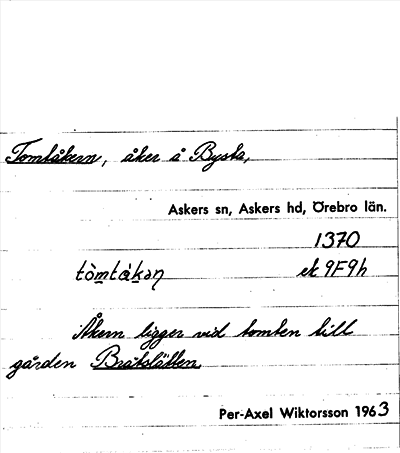 Tomtåkern, åker å Bysta,
Askers sn, Askers hd, Örebro län.
1370
tòm̲tàk̲əɳ ek 9F9h
Åkern ligger vid tomten till
gården Bråtslätten.
Per-Axel Wiktorsson 1963